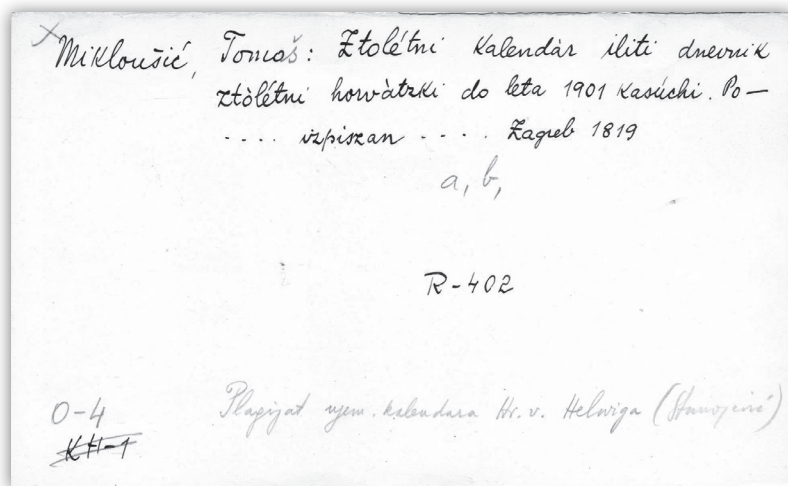 Mikloušić, Tomaš: Ztolétni Kalendàr iliti dnevnik
ztòlétni horvàtzki do leta 1901 kasúchi. Po—
.... izpiszan .... Zagreb 1819
a, b,
R-402
O-4
Plagijat njem. kalendara Hr. v. Helwiga
KH-1